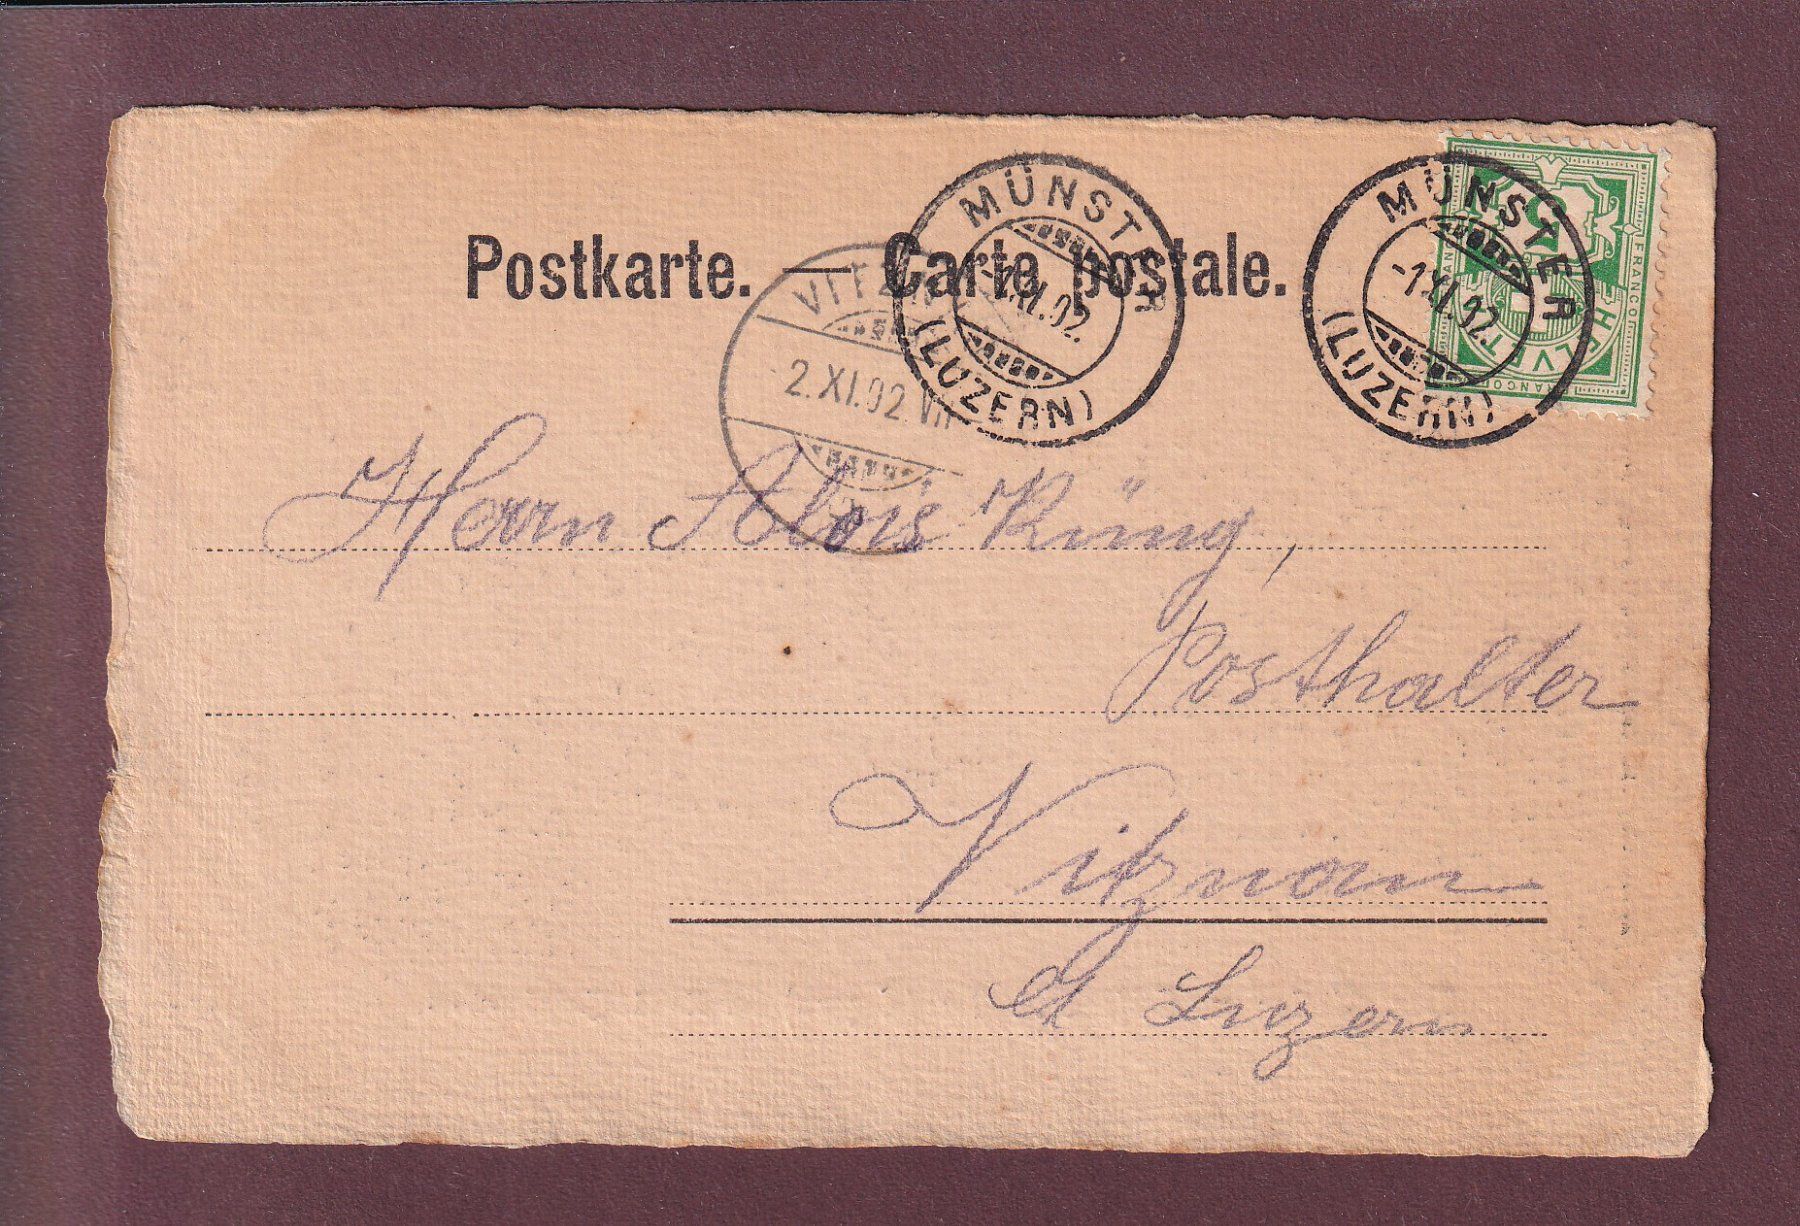 Postkarte. — Carte postale.
MÜNSTER
-1.XI.02.
(LUZERN)
MÜNSTER
-1.XI.02.
(LUZERN)
VITZN
2.XI.02.VII
FRANCO
5
HELVETIA
Herrn Alois Küng,
Posthalter
Vitznau
Ct Luzern